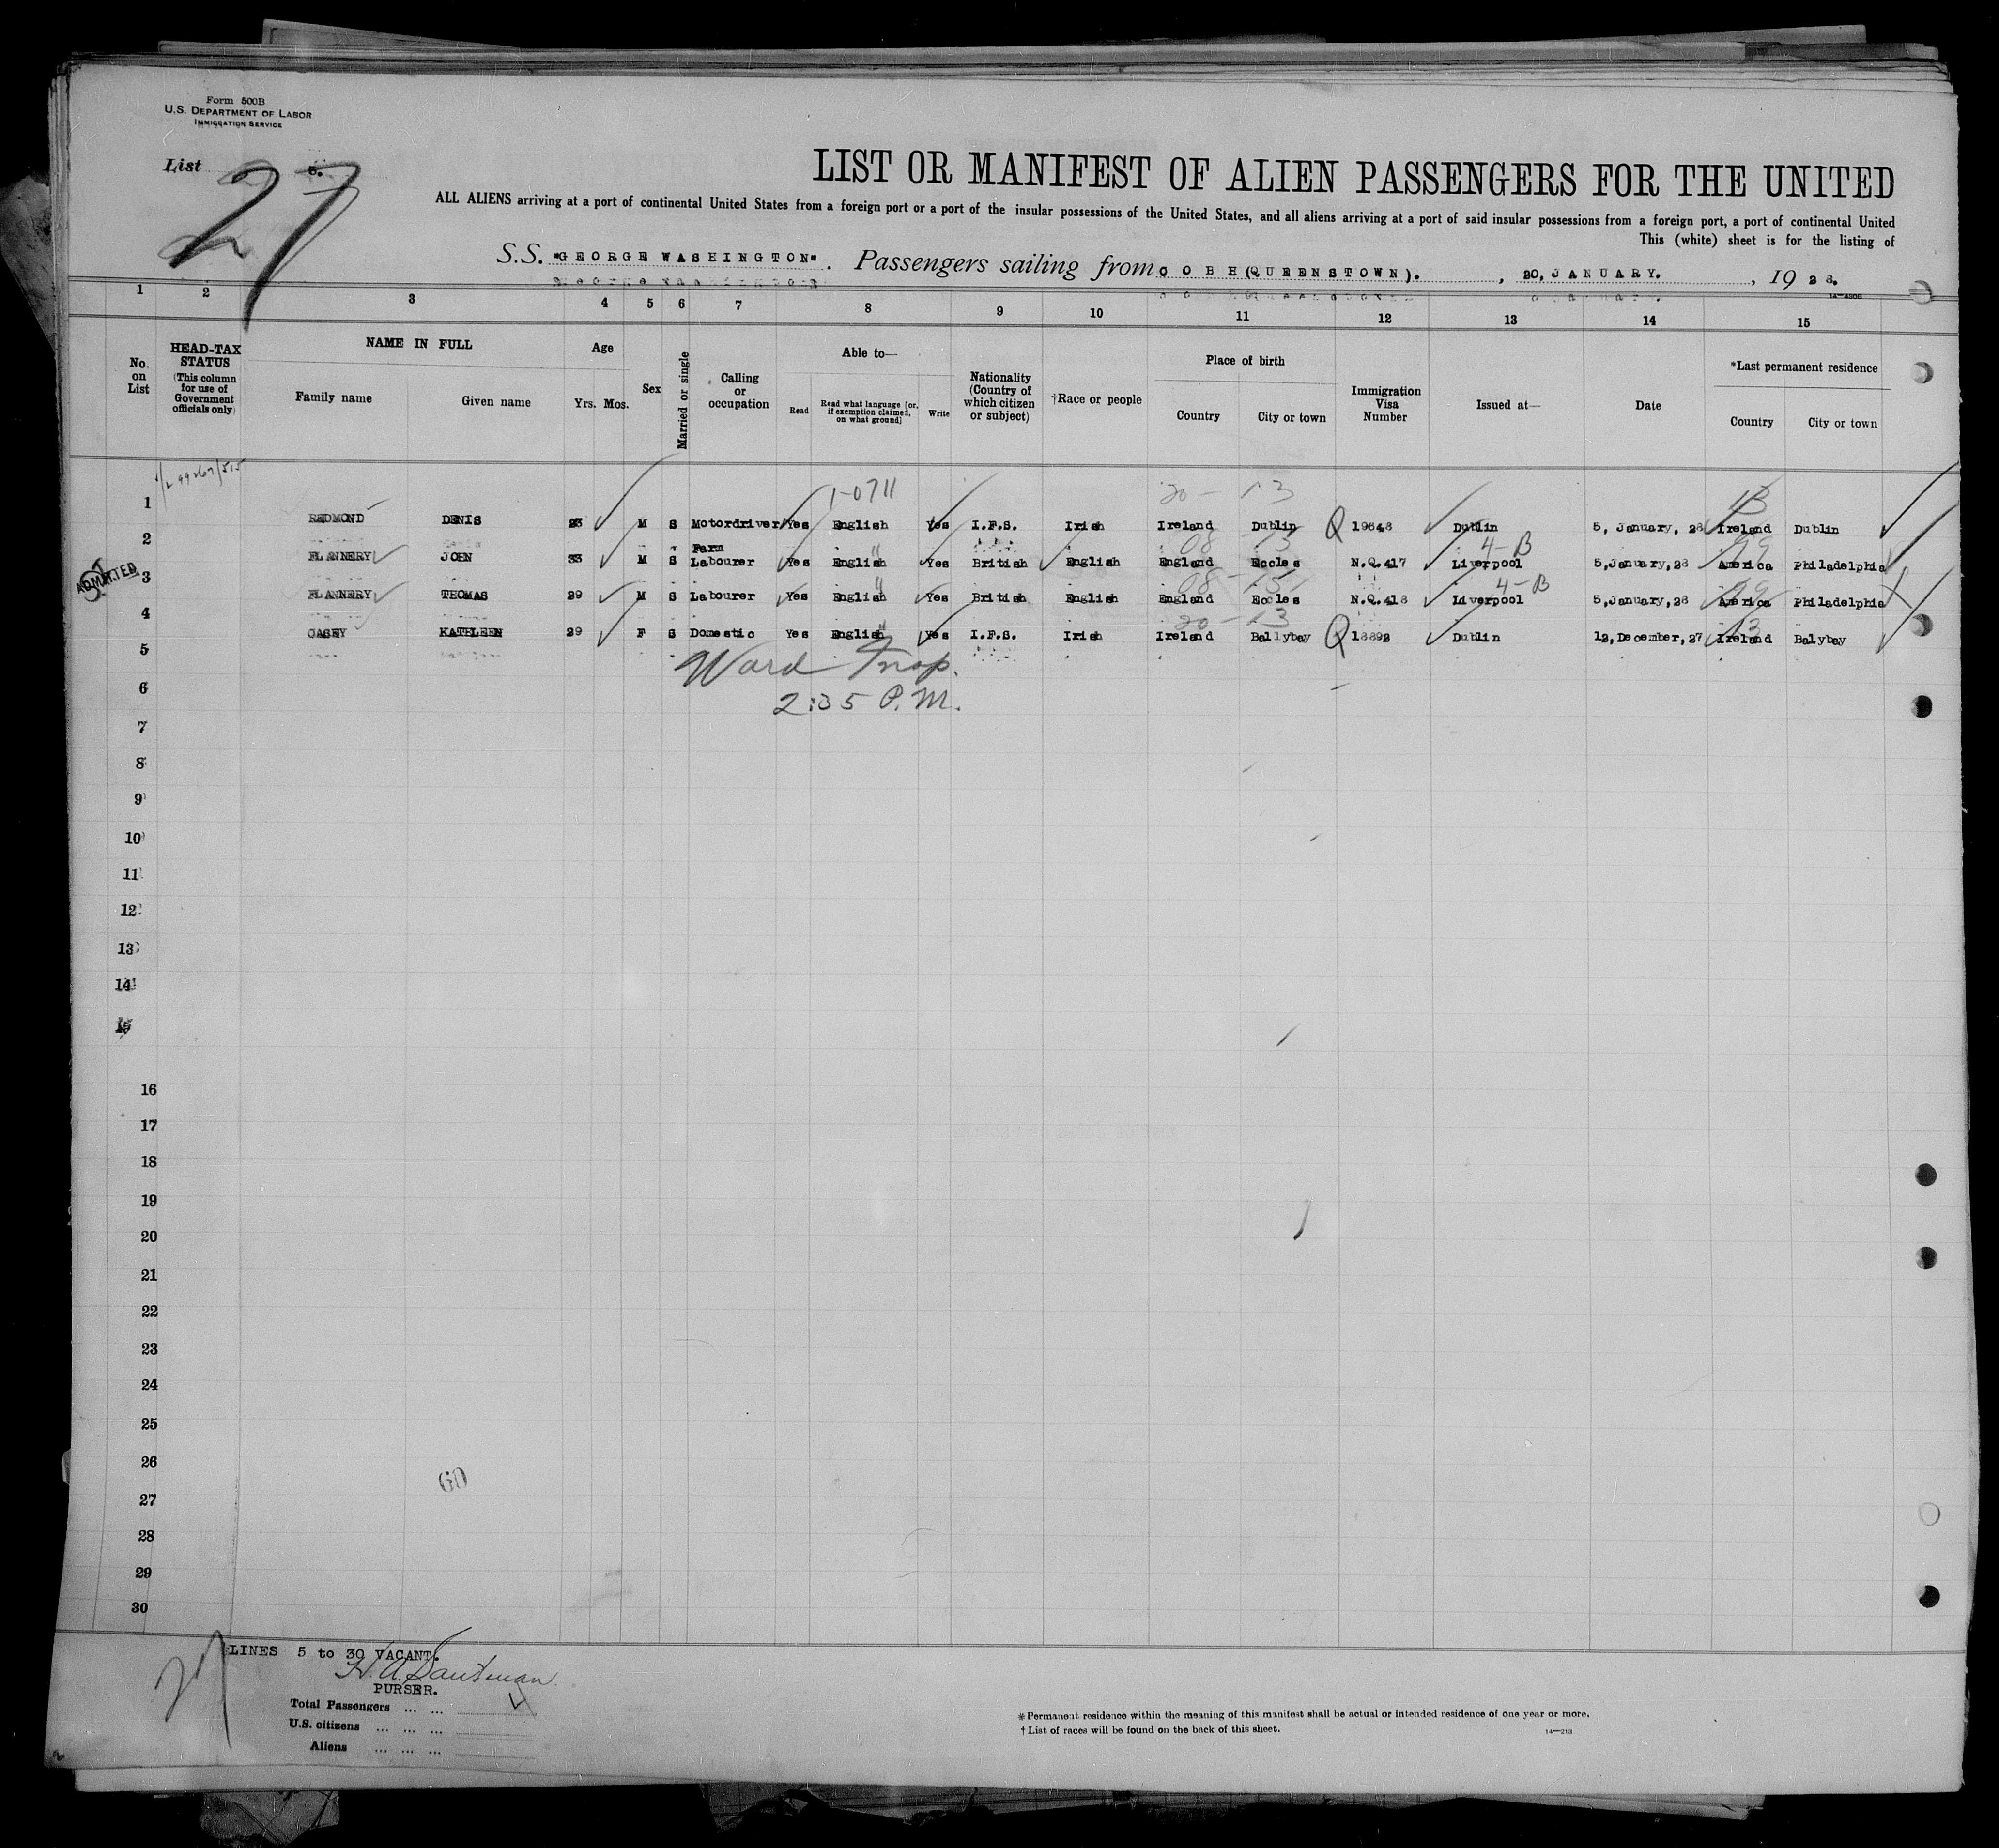 Form 500B
U.S. DEPARTMENT OF LABOR
IMMIGRATION SERVICE
List 5.
27
LIST OR MANIFEST OF ALIEN PASSENGERS FOR THE UNITED
ALL ALIENS arriving at a port of continental United States from a foreign port or a port of the insular possessions of the United States, and all aliens arriving at a port of said insular possessions from a foreign port, a port of continental United
This (white) sheet is for the listing of
S.S. "GEORGE WASHINGTON". Passengers sailing from COBH(QUEENSTOWN). , 20, JANUARY. , 19 28.
1 2 3 4 5 6 7 8 9 10 11 12 13 14 15
No. on List
HEAD-TAX STATUS (This column for use of Government officials only)
NAME IN FULL
Family name Given name
Age
Yrs. Mos.
Sex
Married or single
Calling or occupation
Able to—
Read Read what language [or, if exemption claimed, on what ground] Write
Nationality (Country of which citizen or subject)
†Race or people
Place of birth
Country City or town
Immigration Visa Number
Issued at—
Date
*Last permanent residence
Country City or town
1-0711 20 - 13 13
1 REDMOND DENIS 23 M S Motordriver Yes English Yes I.F.S. Irish Ireland Dublin Q 19648 Dublin 5, January, 28 Ireland Dublin
08 13 4-B 99
2 FLANNERY JOHN 33 M S Farm Labourer Yes English " Yes British English England Eccles N.Q.417 Liverpool 5,January,28 America Philadelphia
ADMITTED
08 - 15 4-B 99
3 FLANNERY THOMAS 29 M S Labourer Yes English " Yes British English England Eccles N.Q.418 Liverpool 5,January,28 America Philadelphia
20 - 13 13
4 CASEY KATHLEEN 29 F S Domestic Yes English " Yes I.F.S. Irish Ireland Ballybay Q 18892 Dublin 12,December,27 Ireland Balybay
5
Ward Insp.
6
2:35 P.M.
7
8
9
10
11
12
13
14
15
16
17
18
19
20
21
22
23
24
25
26
60
27
28
29
30
27
LINES 5 to 30 VACANT.
PURSER.
Total Passengers ... ...
U.S. citizens ... ... ...
Aliens ... ... ...
*Permanent residence within the meaning of this manifest shall be actual or intended residence of one year or more.
†List of races will be found on the back of this sheet.
14—213